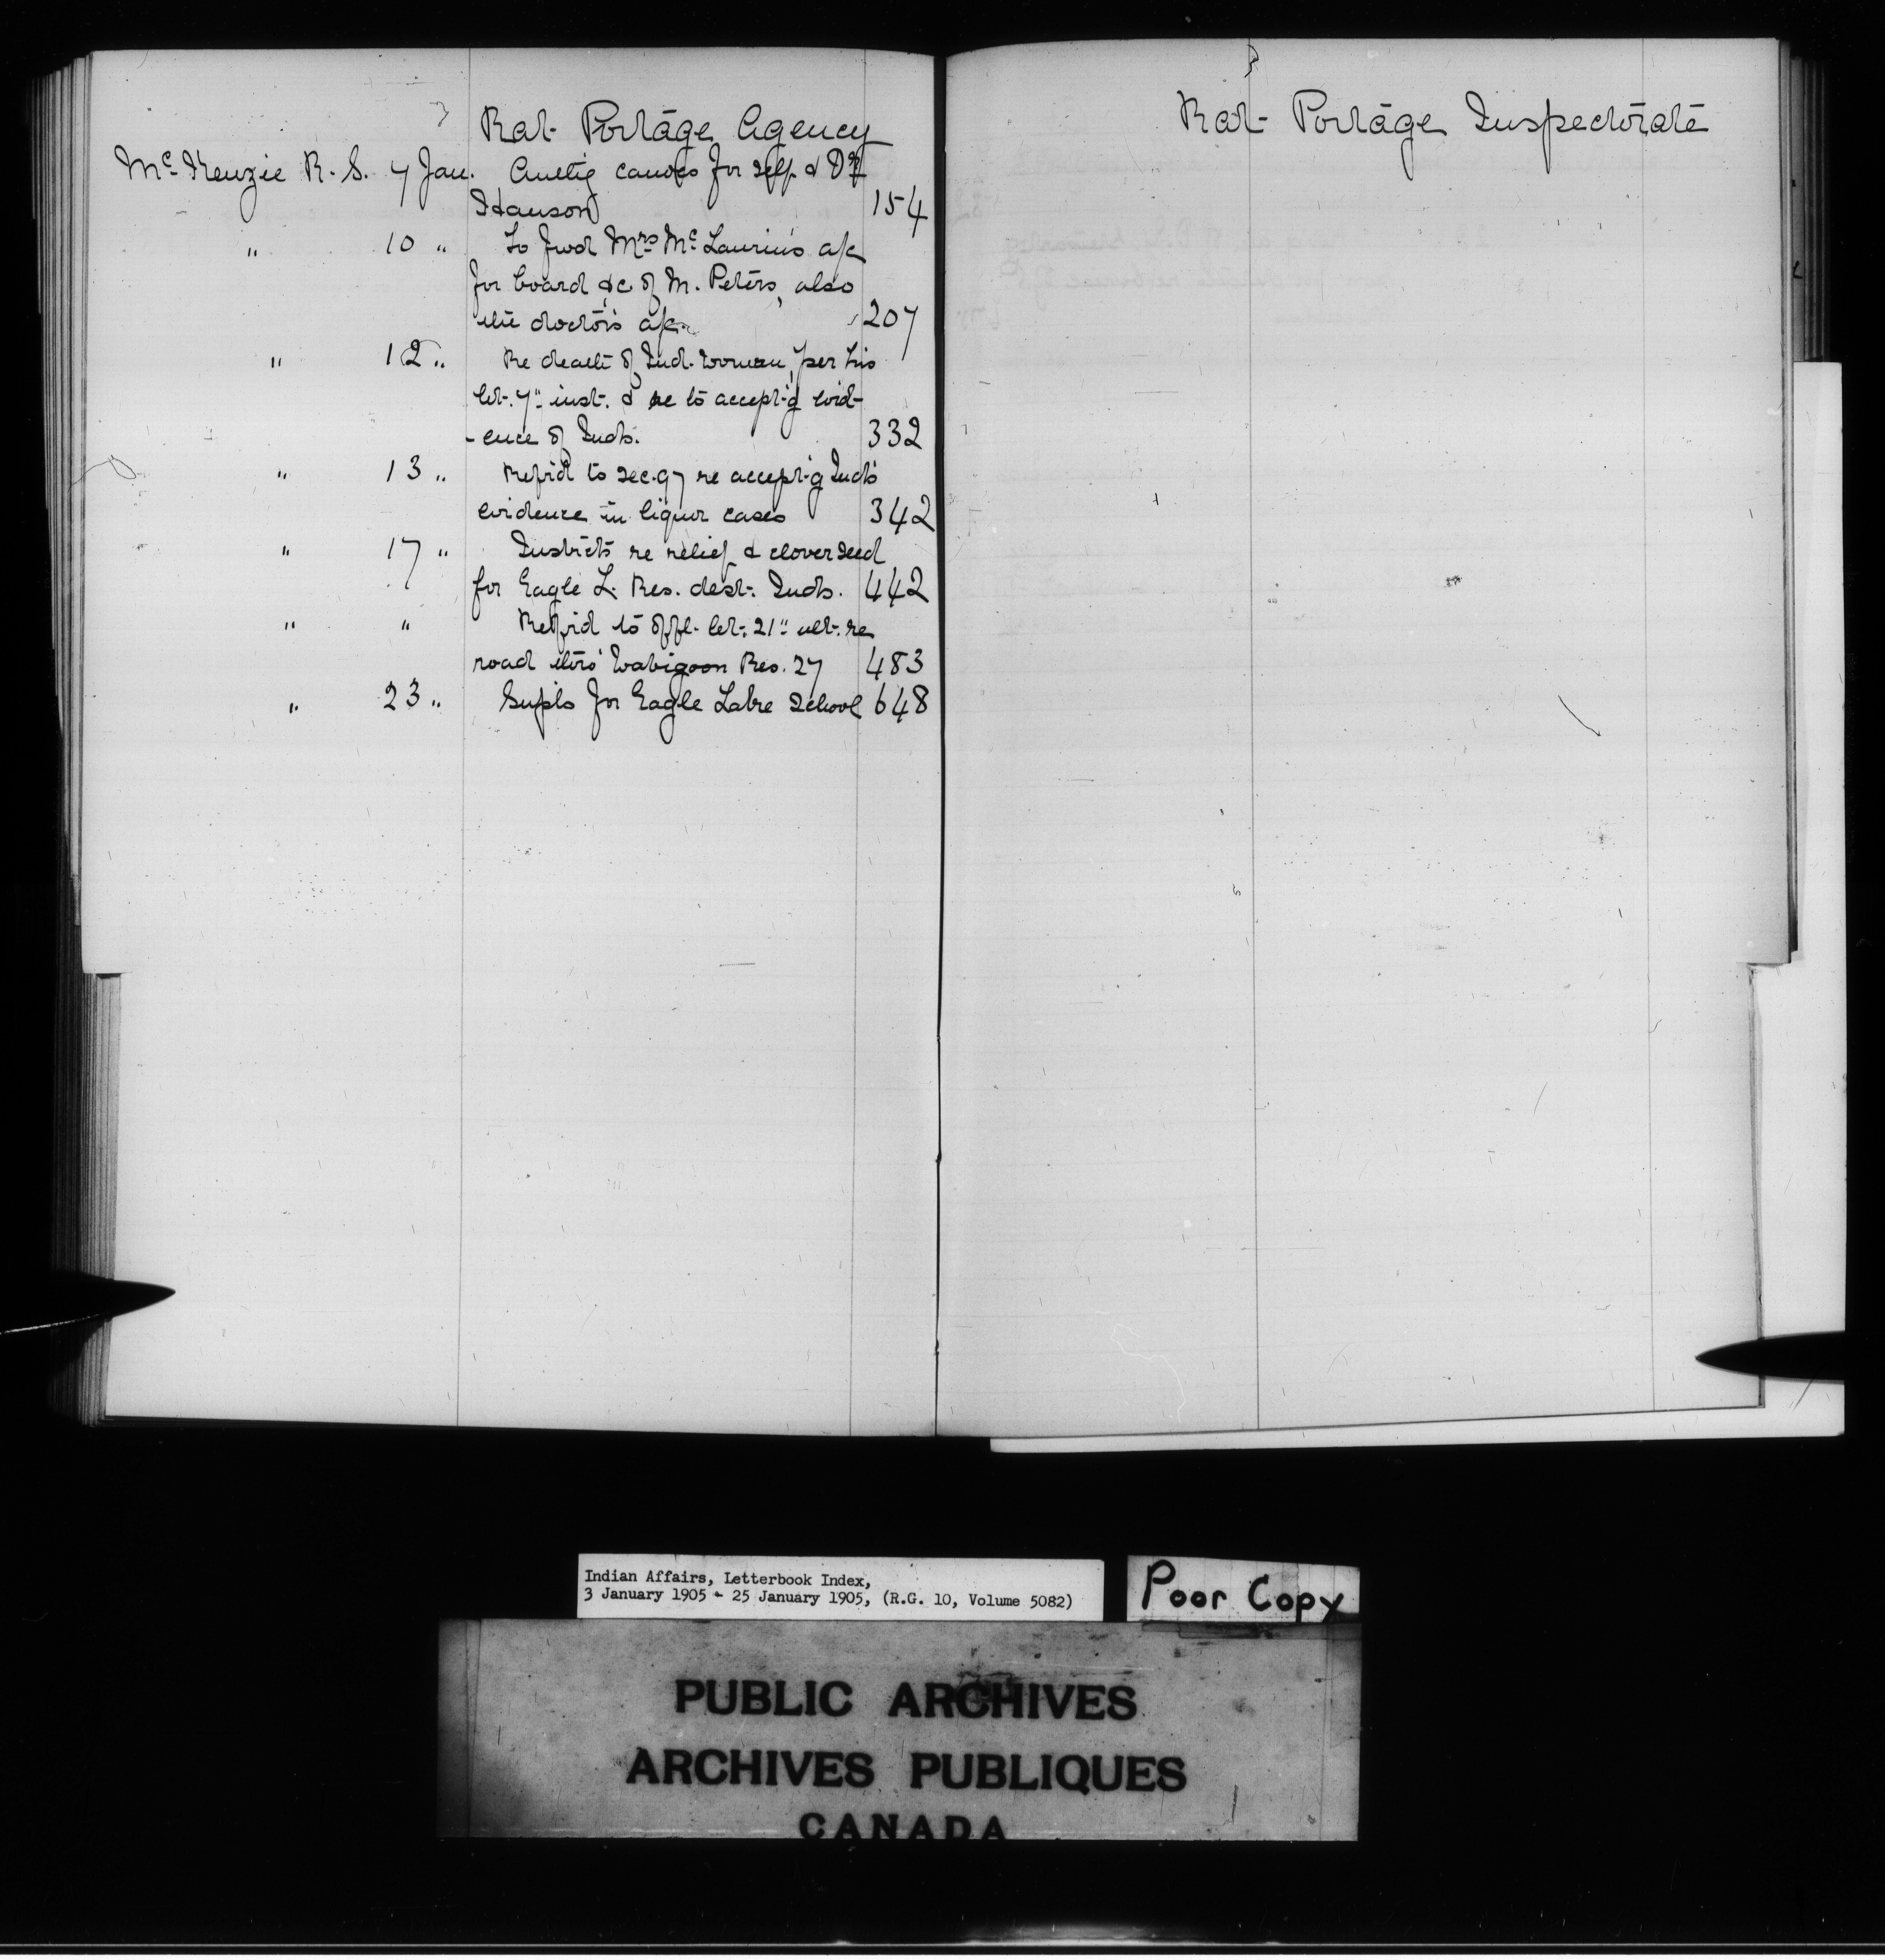 Rat Portage Agency
McKenzie R. S. 7 Jan. Authg canoes for self & Dr
Hanson 154
" 10 " To fwd Mrs McLaurin's a/c
for board &c of M. Peters, also
the doctor's a/c. 207
" 12 " Re death of Ind. woman, per his
let. 7" inst. & re to accept'g evid-
-ence of Inds. 332
" 13 " Refrd to sec. 97 re accept'g Inds'
evidence in liquor cases 342
" 17 " Instrcts re relief & clover seed
for Eagle L. Res. dest. Inds. 442
" " Refrd to offl. let. 21" ult. re
road thro' Wabigoon Res. 27 483
" 23 " Supls for Eagle Lake School 648
Rat Portage Inspectorate
Indian Affairs, Letterbook Index,
3 January 1905 - 25 January 1905, (R.G. 10, Volume 5082)
Poor Copy
PUBLIC ARCHIVES
ARCHIVES PUBLIQUES
CANADA